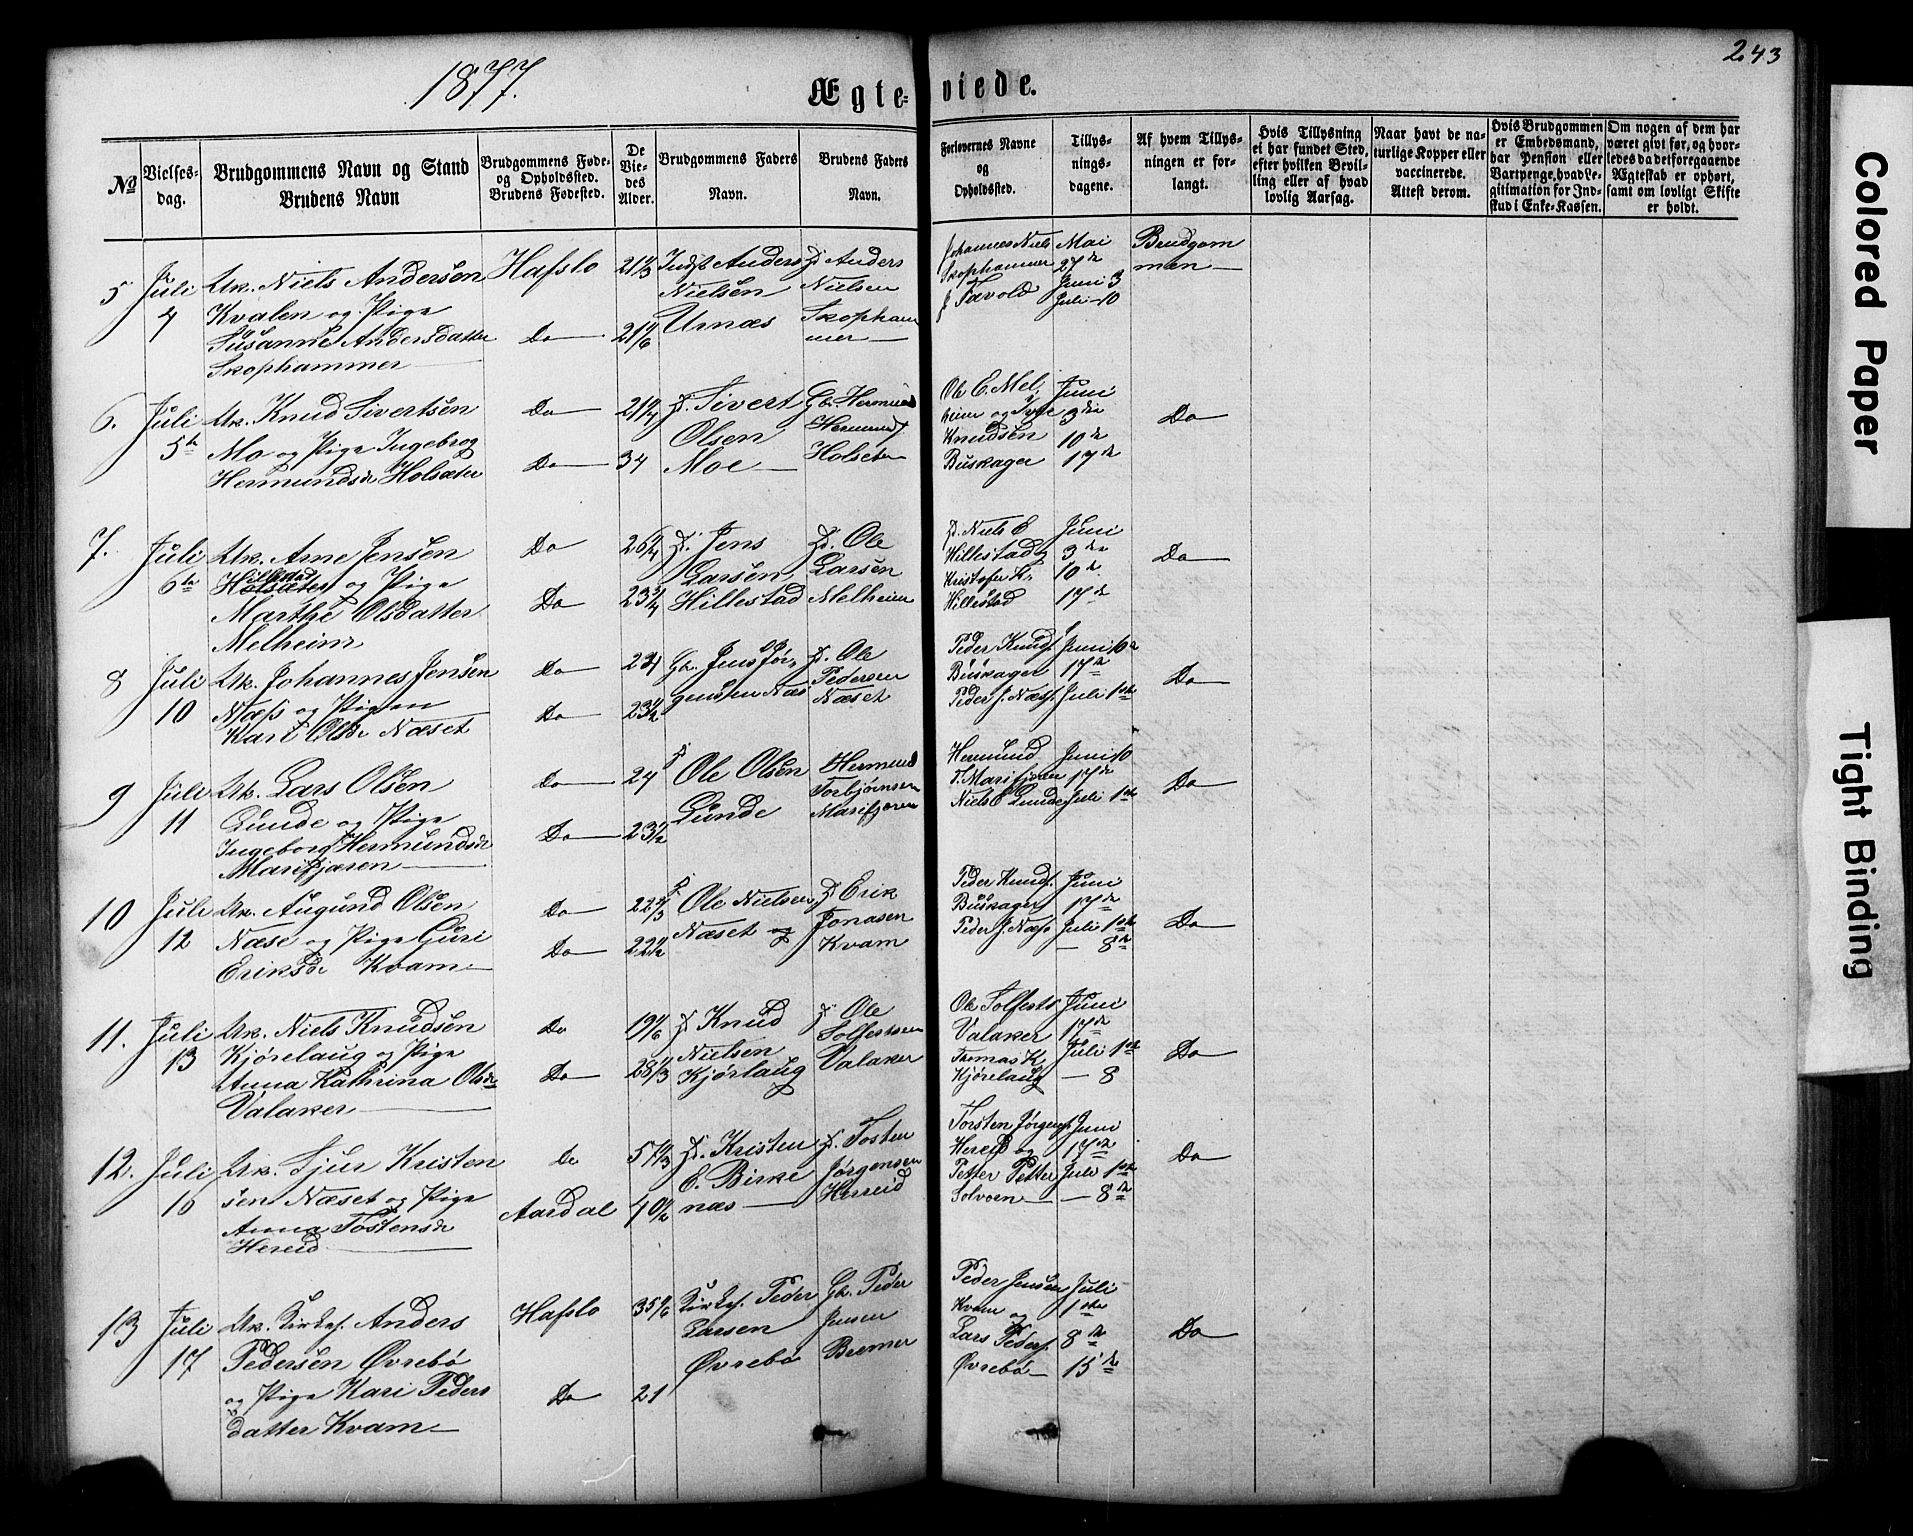 1877.
243
Ægte- viede.
No
Vielses-
dag.
Brudgommens Navn og Stand
Brudens Navn
Brudgommens Føde-
og Opholdssted.
Brudens Fødested.
De
Vie-
des
Alder.
Brudgommens Faders
Navn.
Brudens Faders
Navn.
Forlovernes Navne
og
Opholdssted.
Tillys-
nings-
dagene.
Af hvem Tillys-
ningen er for-
langt.
Hvis Tillysning
ei har fundet Sted,
efter hvilken Bevil-
ling eller af hvad
lovlig Aarsag.
Naar havt de na-
turlige Kopper eller
vaccinerede.
Attest derom.
Hvis Brudgommen
er Embedsmand,
har Pension eller
Vartpenge, hvad Le-
gitimation for Ind-
skud i Enke-Kassen.
Om nogen af dem har
været givt før, og hvor-
ledes da det foregaaende
Ægteskab er ophørt,
samt om lovligt Skifte
er holdt.
5 Juli 4
Uk. Niels Andersen
Kvalen og Pige
Susanne Andersdatter
Skophammer
Hafslo
Do
21 1/3
21 1/6
Indst Anders
Nielsen
Urnæs
Anders
Nielsen
Skopham
mer
Johannes Niels
Skophammer
J Favold
Mai
27de
Juni 3
Juli 10
Brudgom
men
6. Juli 5te
Uk. Knud Sivertsen
Mo og Pige Ingebrog
Hermundsdr Holsæter
Do
Do
21 1/4
34
Sivert
Olsen
Moe
Gbr. Hermund
Hermunds
Holseter
Ole E. Mel
heim og
Knudsen
Buskager
Juni
3die
10de
17de
Do
7. Juli 6te
Uk. Arne Jensen
Hillestad
Holsæter og Pige
Marthe Olsdatter
Melheim
Do
Do
26 1/4
23 3/4
Jens
Larsen
Hillestad
Ole
Larsen
Melheim
Niels E
Hillestad og
Kristofer K.
Hillestad
Juni
3die
10de
17de
Do
8 Juli 10
Uk. Johannes Jensen
Næss og Pigen
Kari Olsdr Næset
Do
Do
24
23 1/2
Gbr. Jens Jør-
gensen Næs
Ole
Pedersen
Næset
Peder Knuds.
Buskager
Peder J. Næss
Juni 10de
17de
Juli 1ste
Do
9 Juli 11
Uk. Lars Olsen
Lunde og Pige
Ingeborg Hermundsdr
Marifjæren
Do
Do
24
23 1/2
Ole Olsen
Lunde
Hermund
Torbjørnsen
Marifjæren
Hermund
T. Marifjæren
Niels E Lunde
Juni 10
17de
Juli 1ste
Do
10 Juli 12
Uk. Augund Olsen
Næse og Pige Guri
Eriksdr Kvam
Do
Do
22 2/3
22 1/2
Ole Nielsen
Næset og
Erik
Jonasen
Kvam
Peder Knuds.
Buskager
Peder J. Næss
Juni
17de
Juli 1ste
— 8de
Do
11. Juli 13
Uk. Niels Knudsen
Kjørelaug og Pige
Anna Kathrina Olsdr
Valaker
Do
Do
19 1/6
28 1/3
Knud
Nielsen
Kjørlaug
Ole
Solfestsen
Valaker
Ole Solfests
Valaker
Thomas K
Kjørelaug
Juni
17de
Juli 1ste
— 8
Do
12. Juli 16
Uk. Sjur Kristen
sen Næset og Pige
Anna Tostensdr
Hereid
Do
Aardal
57 1/3
40 1/2
Kristen
E. Birke
næs
Tosten
Jørgensen
Herreid
Torsten Jørgens
Hereid og
Petter Petter
Solvorn
Juni
17de
Juli 1ste
— 8de
Do
13 Juli 17
Uk. Kirkes. Anders
Pedersen Øvrebø
og Pige Kari Peders
datter Kvam
Hafslo
Do
35 1/6
21
Kirkes. Peder
Larsen
Øvrebø
Gbr. Peder
Jensen
Bremer
Peder Jensen
Kvam og
Lars Peders.
Øvrebø
Juli
1ste
8de
15de
Do
Colored Paper
Tight Binding